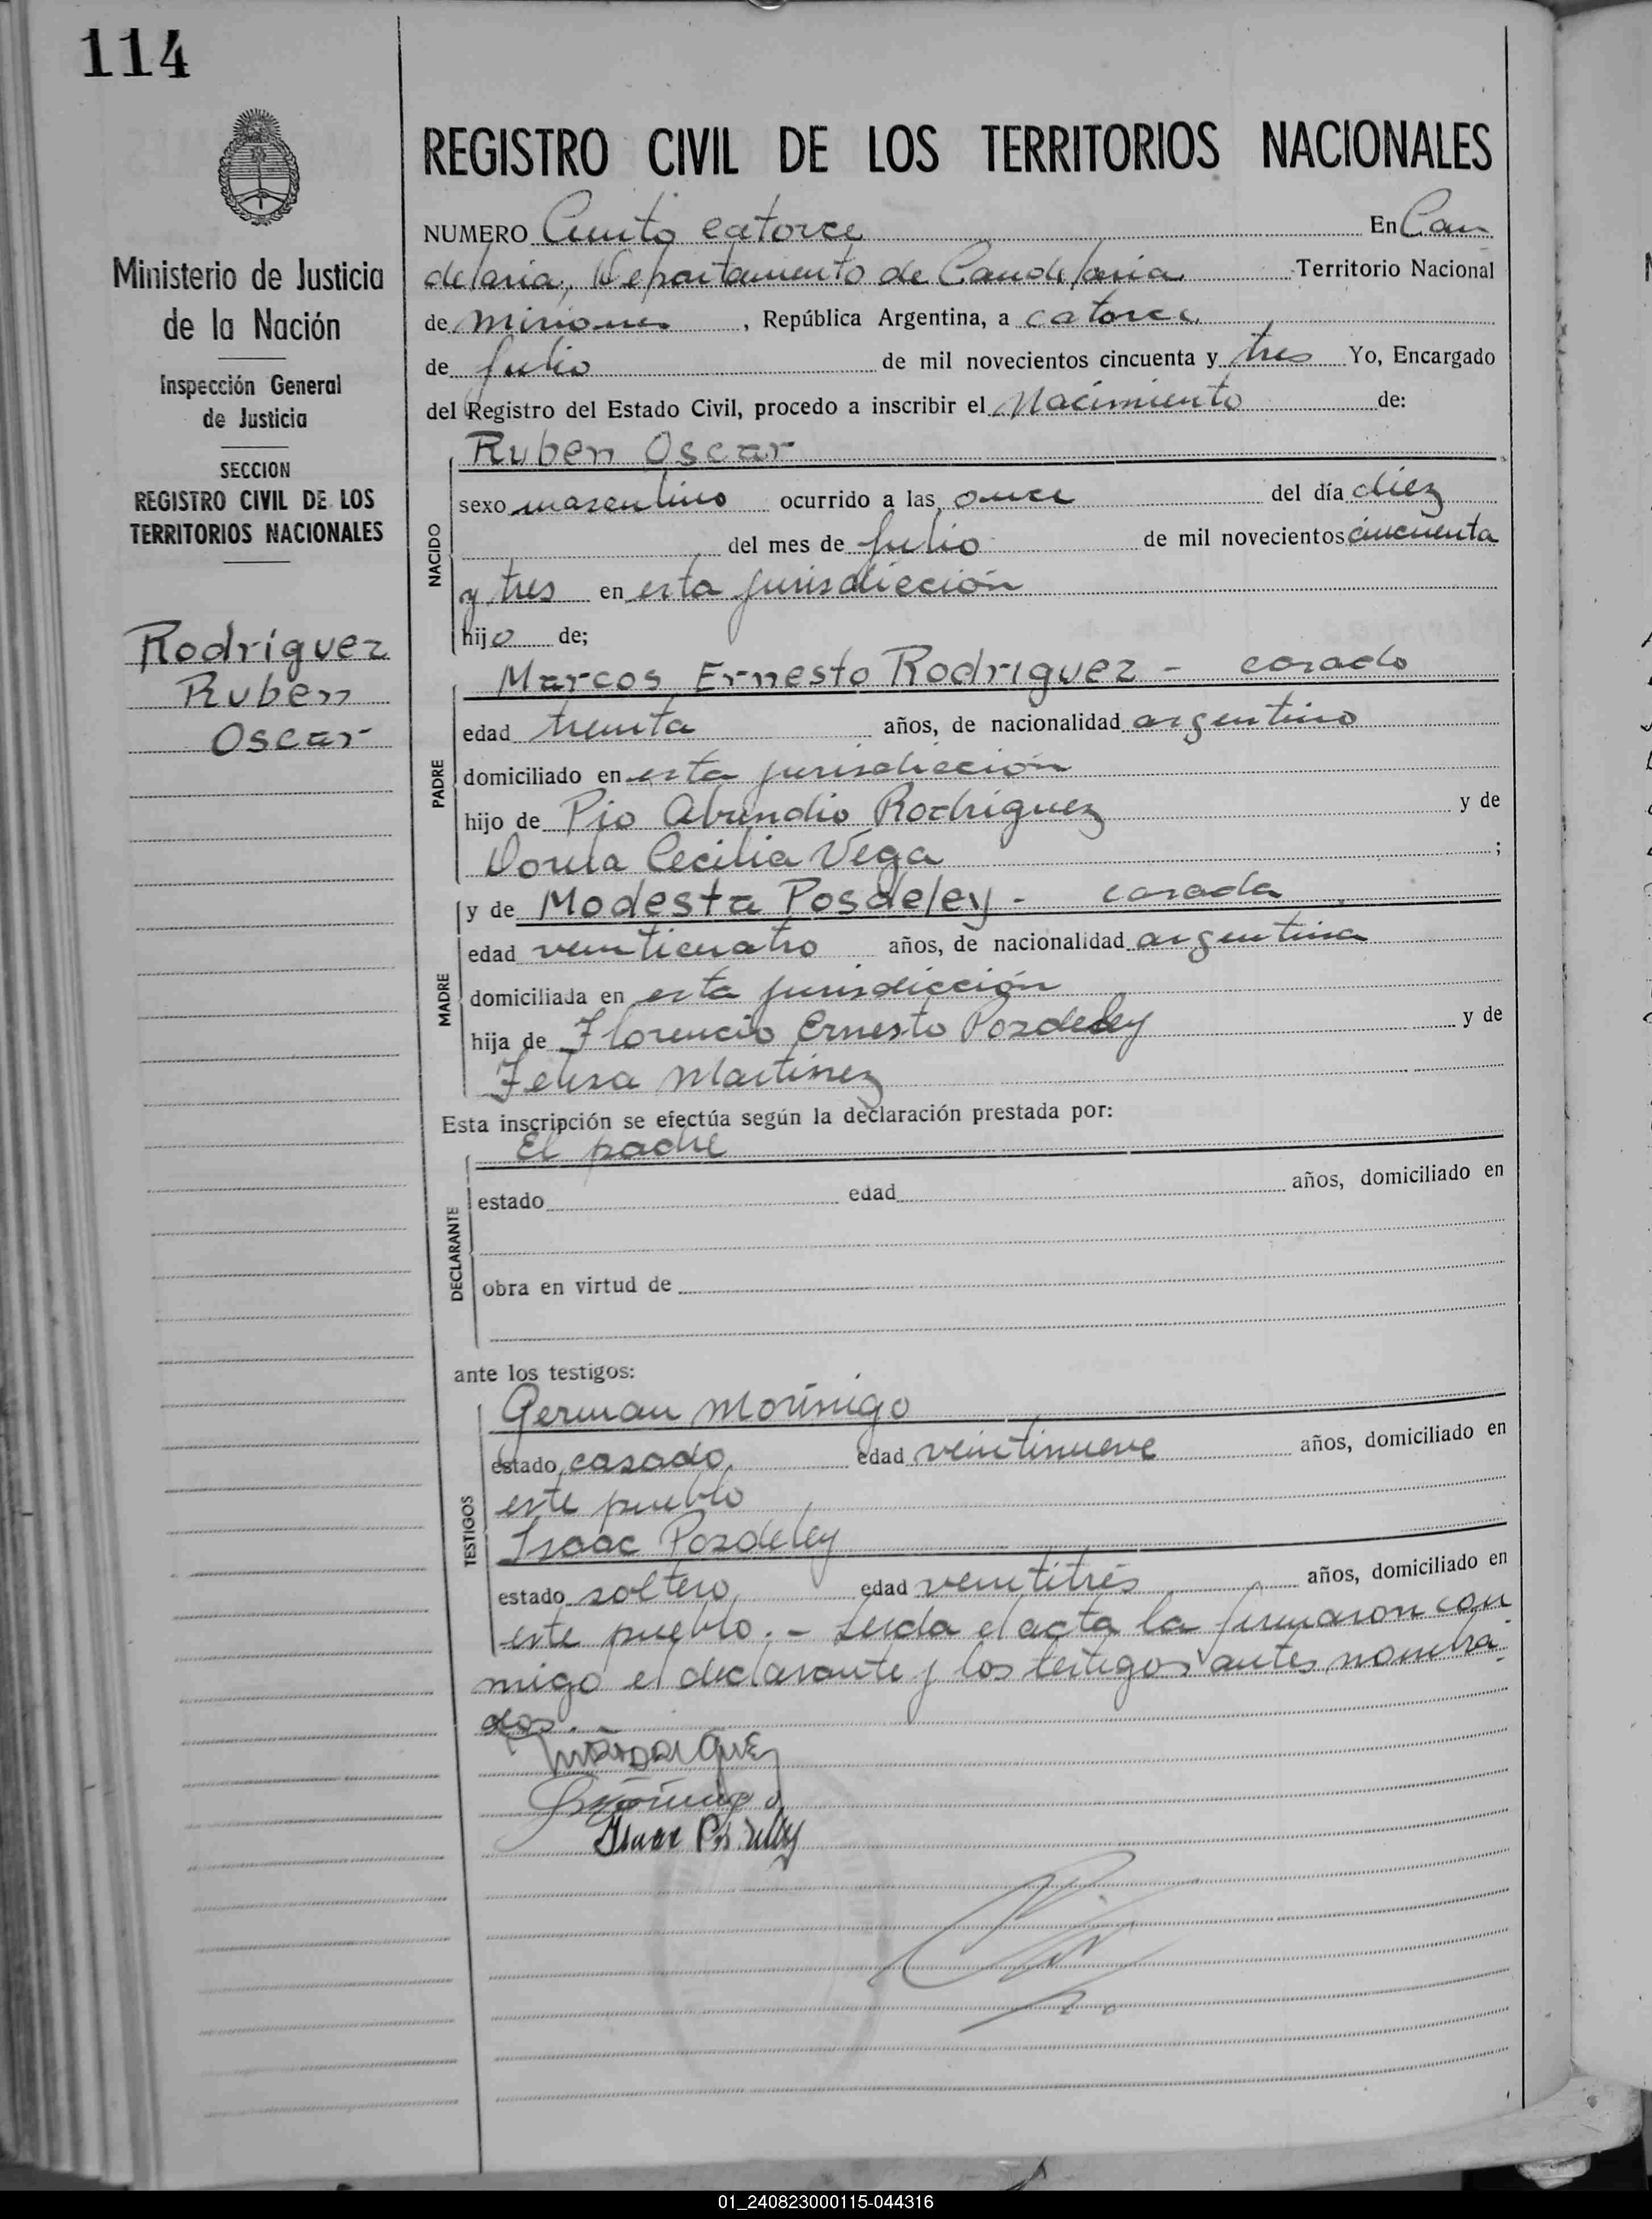 114
Ministerio de Justicia
de la Nación
Inspección General
de Justicia
SECCION
REGISTRO CIVIL DE LOS
TERRITORIOS NACIONALES
Rodríguez
Ruben
Oscar
REGISTRO CIVIL DE LOS TERRITORIOS NACIONALES
NUMERO Ciento catorce En Can
delaria, Departamento de Candelaria Territorio Nacional
de Misiones, República Argentina, a catorce
de Julio de mil novecientos cincuenta y tres Yo, Encargado
del Registro del Estado Civil, procedo a inscribir el Nacimiento de:
Ruben Oscar
NACIDO
sexo masculino ocurrido a las once del día diez
del mes de Julio de mil novecientos cincuenta
y tres en esta jurisdicción
hijo de;
Marcos Ernesto Rodriguez - casado
PADRE
edad treinta años, de nacionalidad argentino
domiciliado en esta jurisdicción
hijo de Pio Abundio Rodriguez y de
Cecilia Vega ;
y de Modesta Posdeley - casada
MADRE
edad veinticuatro años, de nacionalidad argentina
domiciliada en esta jurisdicción
hija de Florencio Ernesto Posdeley y de
Felisa Martinez
Esta inscripción se efectúa según la declaración prestada por:
El padre
DECLARANTE
estado edad años, domiciliado en
obra en virtud de
ante los testigos:
German Morinigo
TESTIGOS
estado casado edad veintinueve años, domiciliado en
este pueblo
Isaac Posdeley
estado soltero edad veintitrés años, domiciliado en
este pueblo. - Leida el acta la firmaron con
migo el declarante y los testigos antes nombra-
dos. -
Isaac Posdeley
01_240823000115-044316